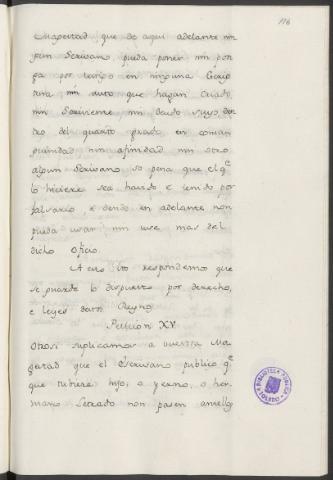 116
Magestad, que de aqui adelante nin
gun Escrivano, pueda poner nin pon
ga por testigo en ninguna Escrip
tura nin auto que hagan criado
nin Escriviente nin deudo suyo den
tro del quarto grado en consan
guinidad nin afinidad nin otro
algun Escrivano so pena que el qe
lo hiciere sea havido e tenido por
falsario, e dende en adelante non
pueda usar nin use mas del
dicho Oficio.
A esto vos respondemos que
se guarde lo dispuesto por derecho,
e leyes destos Reynos
Peticion XV.
Otrosi suplicamos a vuestra Ma
gestad que el Escrivano publico qe
que tubiere hijo, o yerno, o her
mano Letrado non pasen antel qe
BIBLIOTECA PUBLICA
TOLEDO